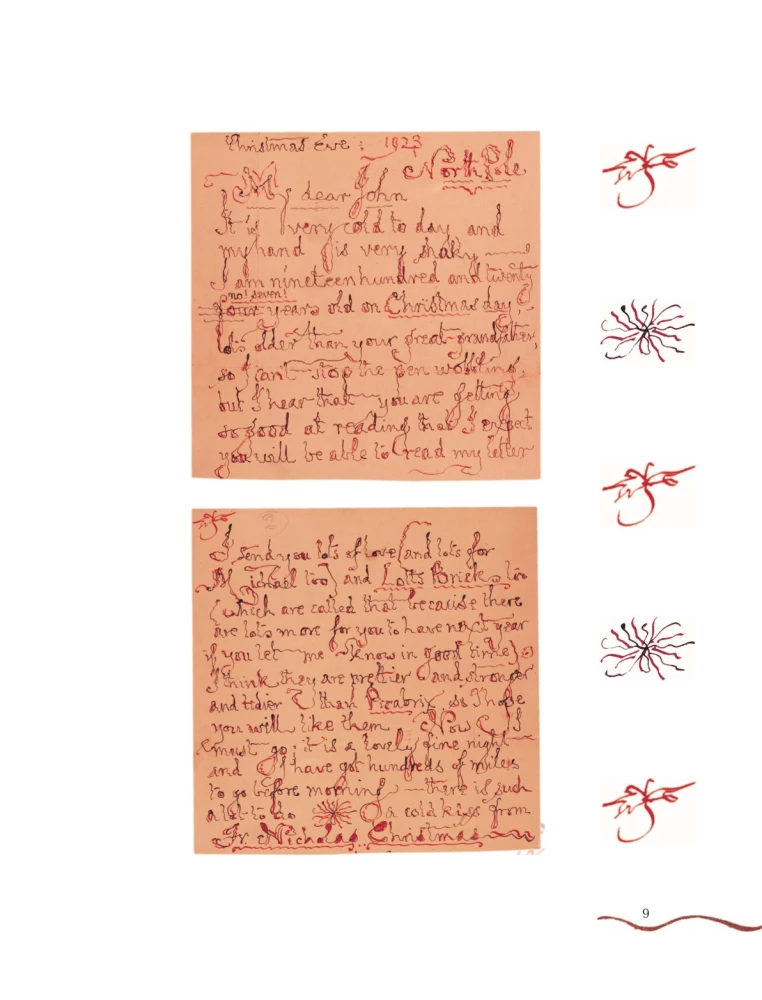 Christmas Eve : 1923
North Pole
My dear John
It is very cold to day and
my hand is very shaky —
I am nineteen hundred and twenty
no! seven!
four years old on Christmas day,
lots older than your great-grandfather,
so I can't stop the pen wobbling,
but I hear that you are getting
so good at reading that I expect
you will be able to read my letter
I send you lots of love (and lots for
Michael too) and Lotts Bricks too
(which are called that because there
are lots more for you to have next year
if you let me know in good time)
I think they are prettier and stronger
and tidier than Picabrix. So I hope
you will like them Now I
must go; it is a lovely fine night
and I have got hundreds of miles
to go before morning — there is such
a lot to do
a cold kiss from
Fr. Nicholas Christmas
9